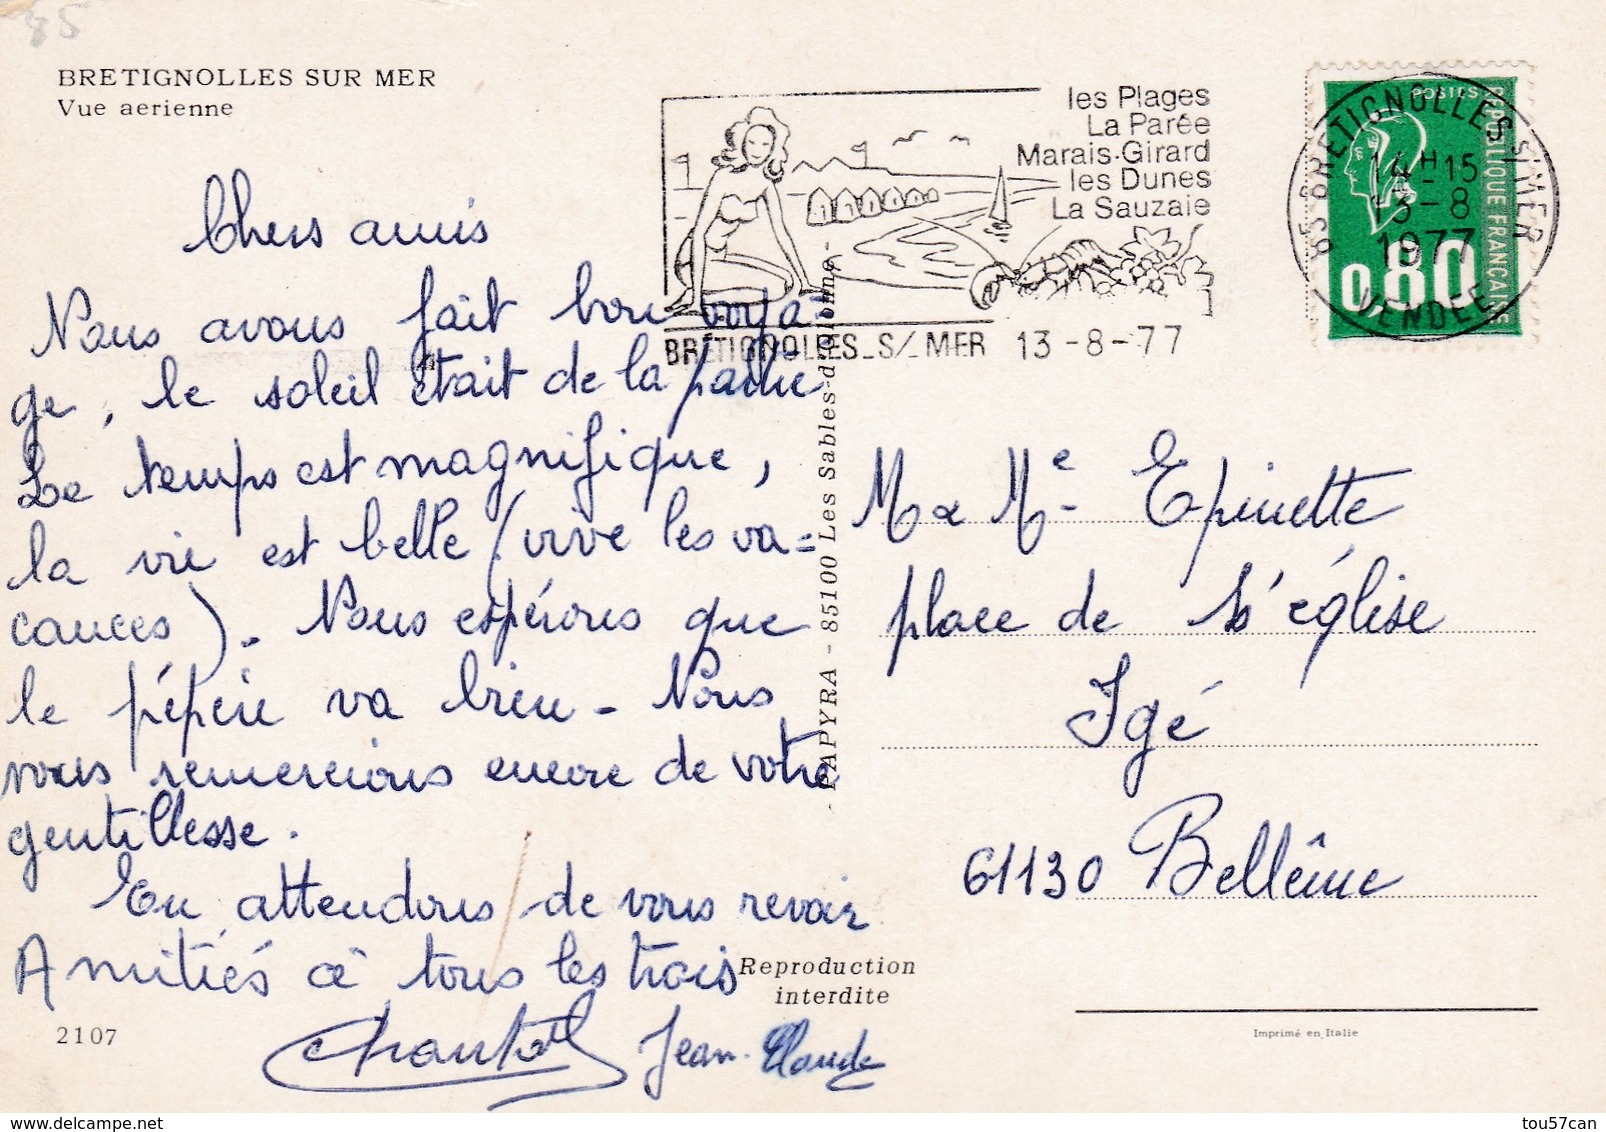 85
BRETIGNOLLES SUR MER
Vue aerienne
les Plages
La Parée
Marais-Girard
les Dunes
La Sauzaie
BRETIGNOLLES_S/_MER 13-8-77
POSTES
REPUBLIQUE FRANÇAISE
0,80
85 BRETIGNOLLES S/MER
14H15
13-8
1977
VENDEE
Chers amis
Nous avons fait bon voya=
ge, le soleil était de la partie
Le temps est magnifique,
la vie est belle (vive les va=
cances). Nous espérons que
le pépère va bien - Nous
vous remercions encore de votre
gentillesse.
En attendons de vous revoir
Amitiés à tous les trois
Chantal Jean-Claude
- PAPYRA - 85100 Les Sables-d'olonne -
M & Me Epinette
place de l'église
Igé
61130 Bellême
Reproduction
interdite
2107
Imprimé en Italie
www.delcampe.net
tou57can